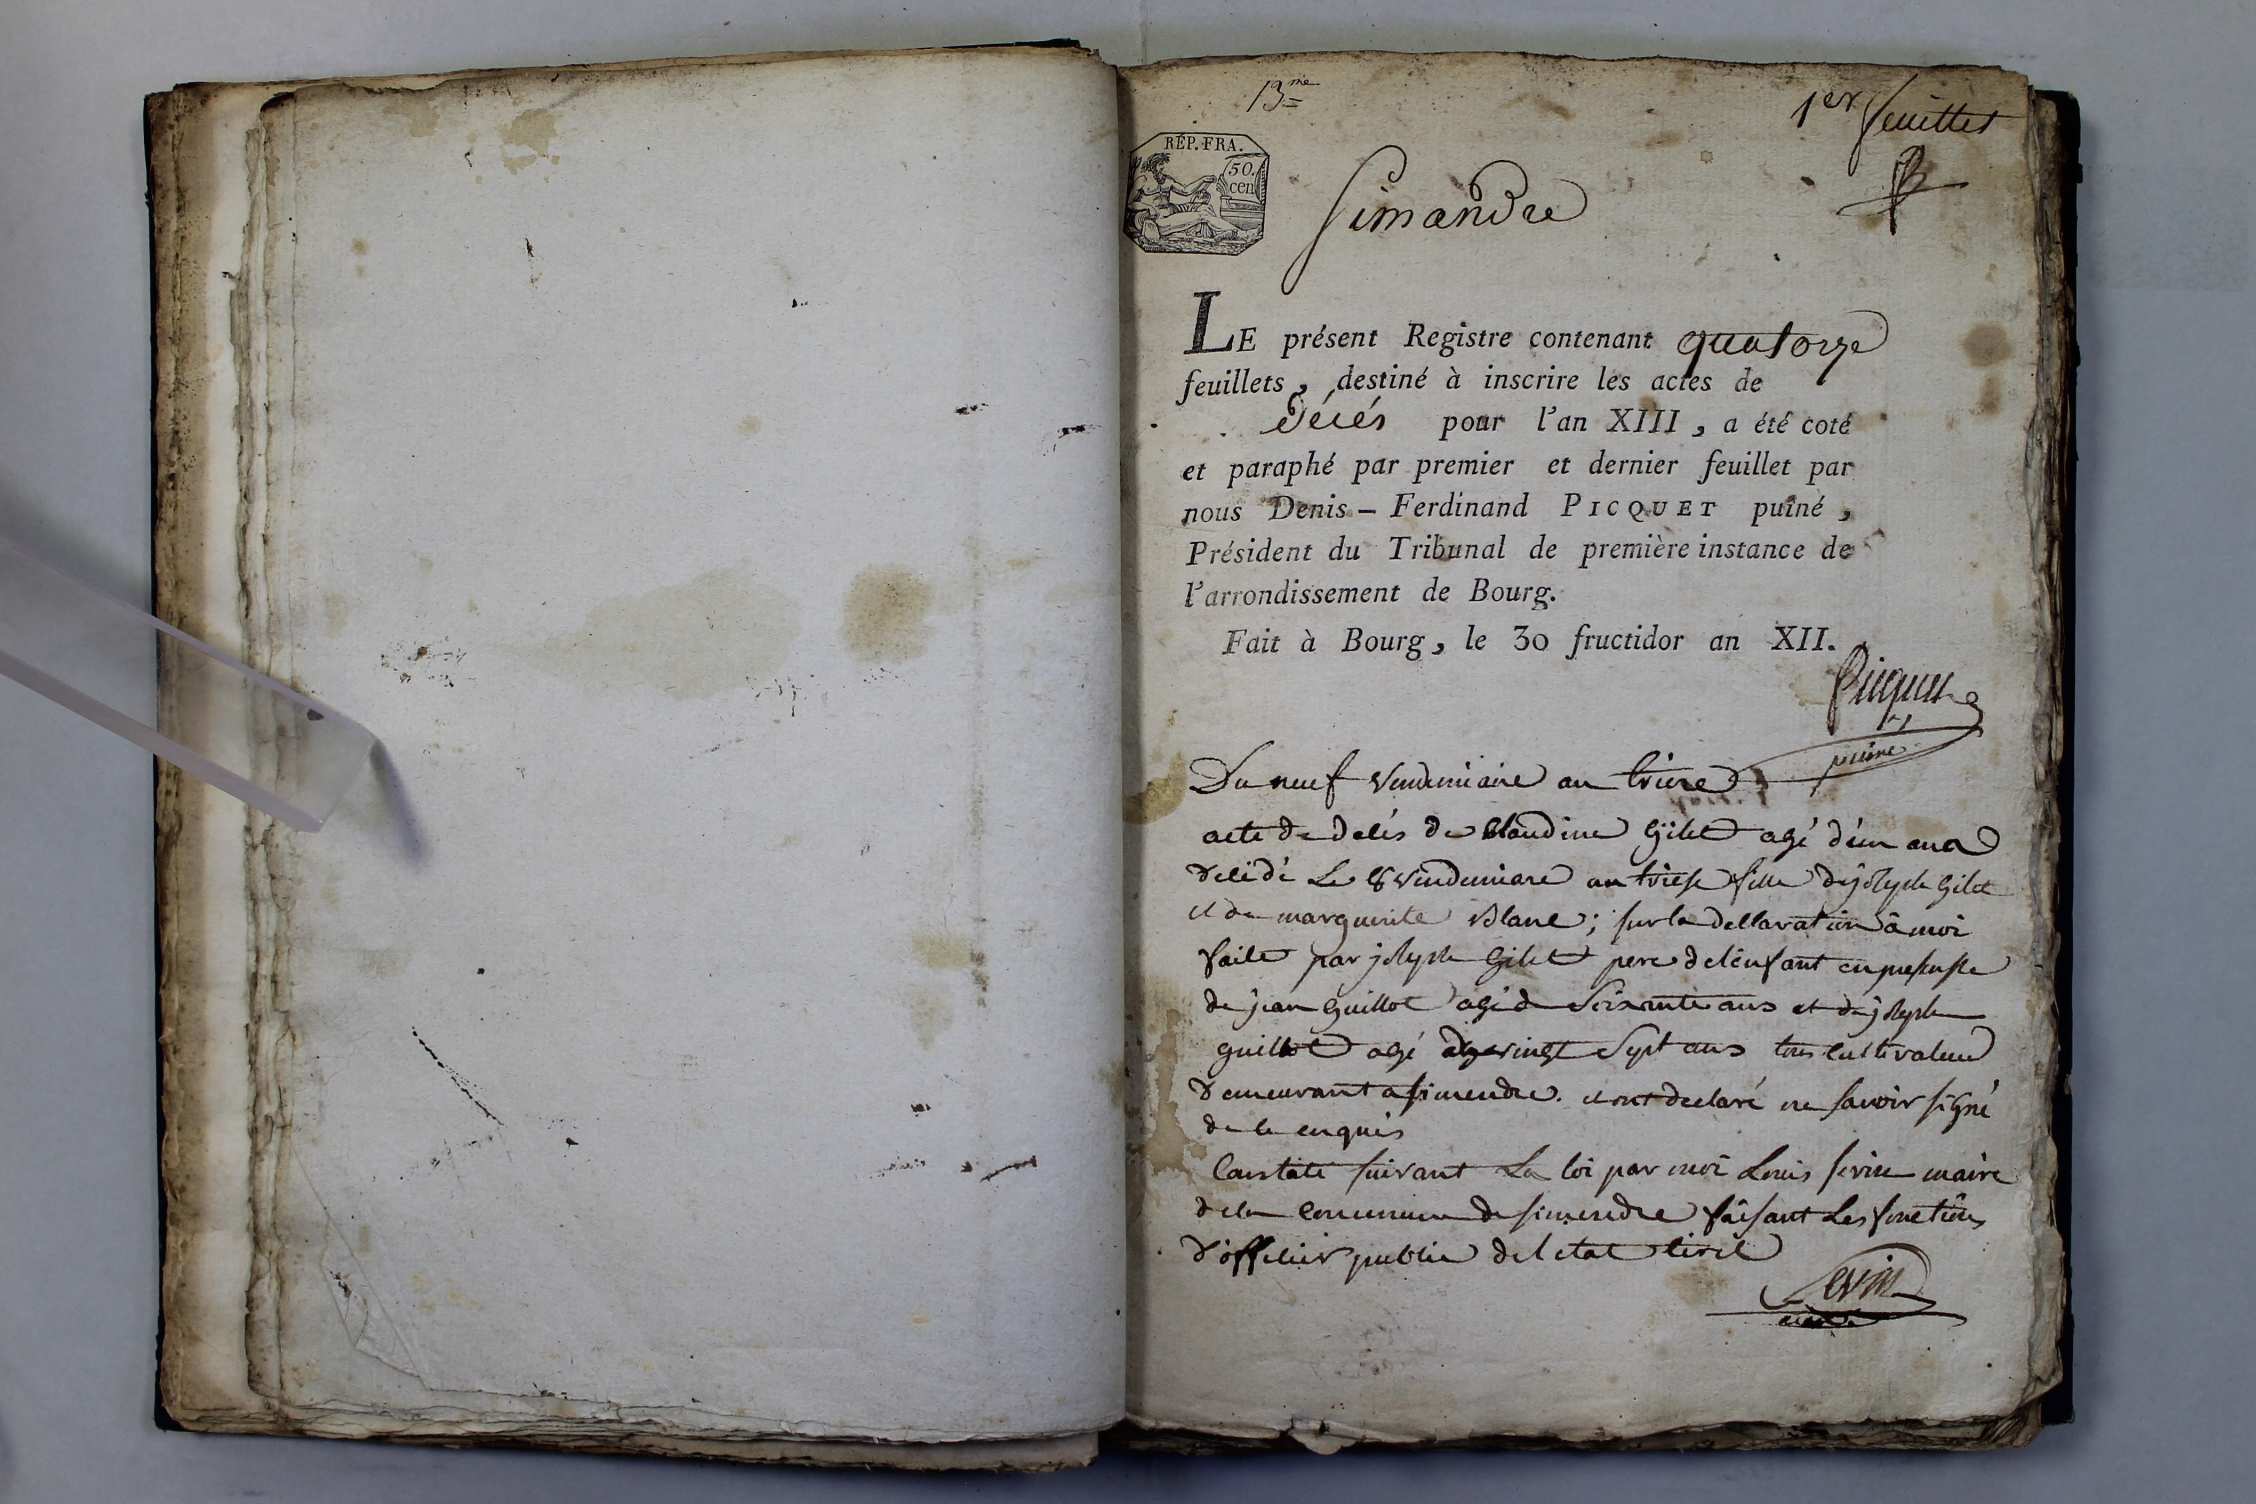 13me
1er feuillet
RÉP. FRA.
50.
cen
Simandre
LE présent Registre contenant quatorze
feuillets, destiné à inscrire les actes de
décés pour l'an XIII, a été coté
et paraphé par premier et dernier feuillet par
nous Denis-Ferdinand PICQUET puîné,
Président du Tribunal de première instance de
l'arrondissement de Bourg.
Fait à Bourg, le 30 fructidor an XII.
Picquet
puîné
Du neuf vendemiaire an treize
acte de decés de Claudine Gilet agé d'un ans
decédé le 8 vendemiare an treise fille de joseph Gilet
et de marguerite Blanc; sur la declaration à moi
faite par joseph Gilet pere de l'enfant en presense
de jean Guillot agé de Soixante ans et de joseph
guillot agé de vingt Sept ans tous cultivateur
demeurant a simendre. et ont declaré ne savoir signé
de ce enquis
Constaté suivant La loi par moi Louis servin maire
de la commune de simendre faisant Les fonctions
d'officier public de l etat civil
Servin
maire